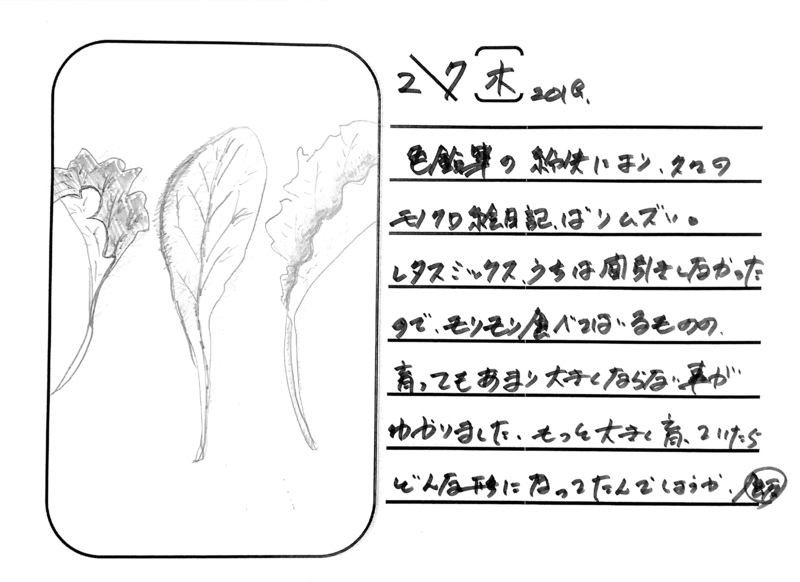 2\7 木 2019.
色鉛筆の紛失により、久々の
モノクロ絵日記、ばリムズい。
レタスミックス、うちは間引きしなかった
ので、モリモリ食べてはいるものの、
育ってもあまり大きくならない事が
わかりました、もっと大きく育っていたら
どんな形になってたんでしょうか、